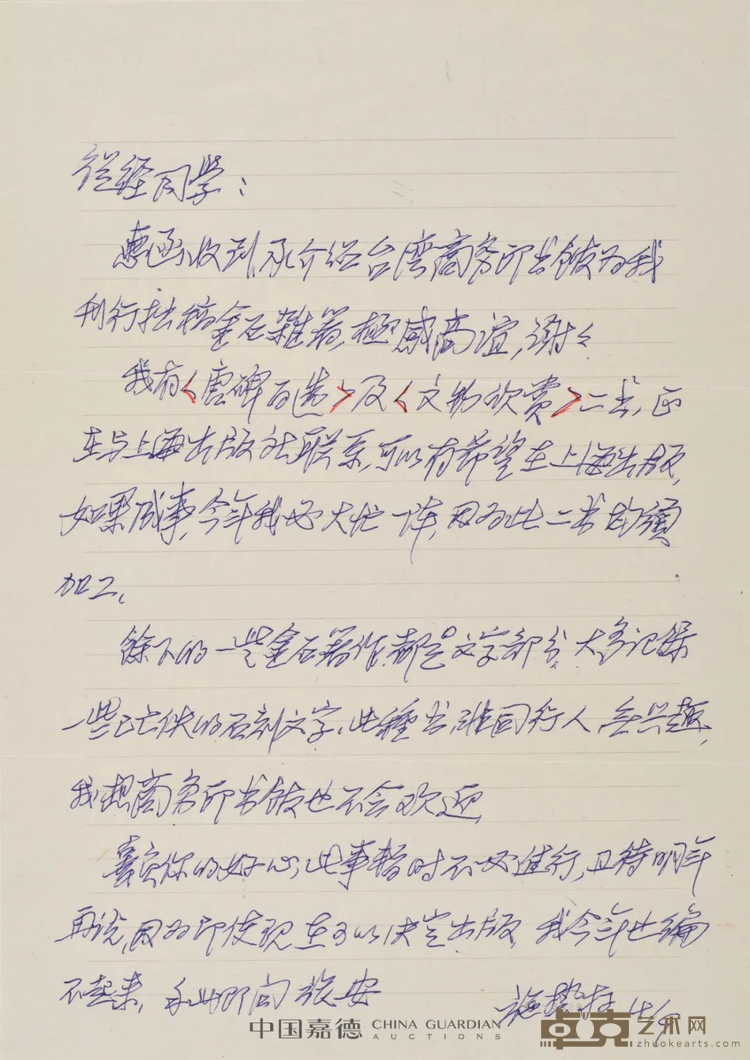 从经同学:
惠函收到,承介绍台湾商务印书馆为我
刊行拙稿金石杂著,極感高谊,谢々
我有《唐碑百选》及《文物欣赏》二书,正
在与上海出版社联系,可以有希望在上海出版,
如果成事,今年我必大忙一阵,因为此二书均须
加工。
餘下的一些金石著作,都是文字部分,大多记录
一些已亡佚的石刻文字,此種书,非同行人,無兴趣,
我想商务印书馆也不会欢迎。
辜负你的好心,此事暂时不必進行,且待明年
再说,因为即使现在可以决定出版 我今年也编
不起来,手此即问 旅安
施蛰存
中国嘉德 CHINA GUARDIAN
AUCTIONS
卓克艺术网
zhuokearts.com